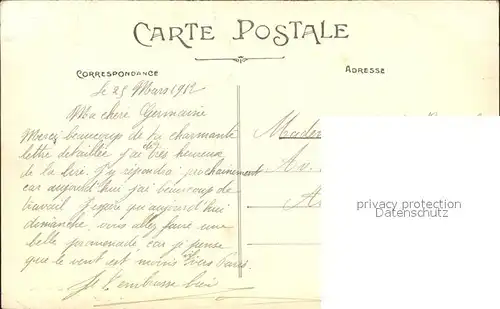 CARTE POSTALE
CORRESPONDANCE
ADRESSE
Le 25 Mars 1912
Ma chère Germaine
Merci beaucoup de ta charmante
lettre détaillée j'ai été très heureux
de la lire. J'y répondrai prochainement
car aujourd'hui j'ai beaucoup de
travail. J'espère qu'aujourd'hui
dimanche, vous allez faire une
belle promenade, car je pense
que le vent est moins vers Paris.
Je t'embrasse bien
Madem
Av.
A
privacy protection
Datenschutz